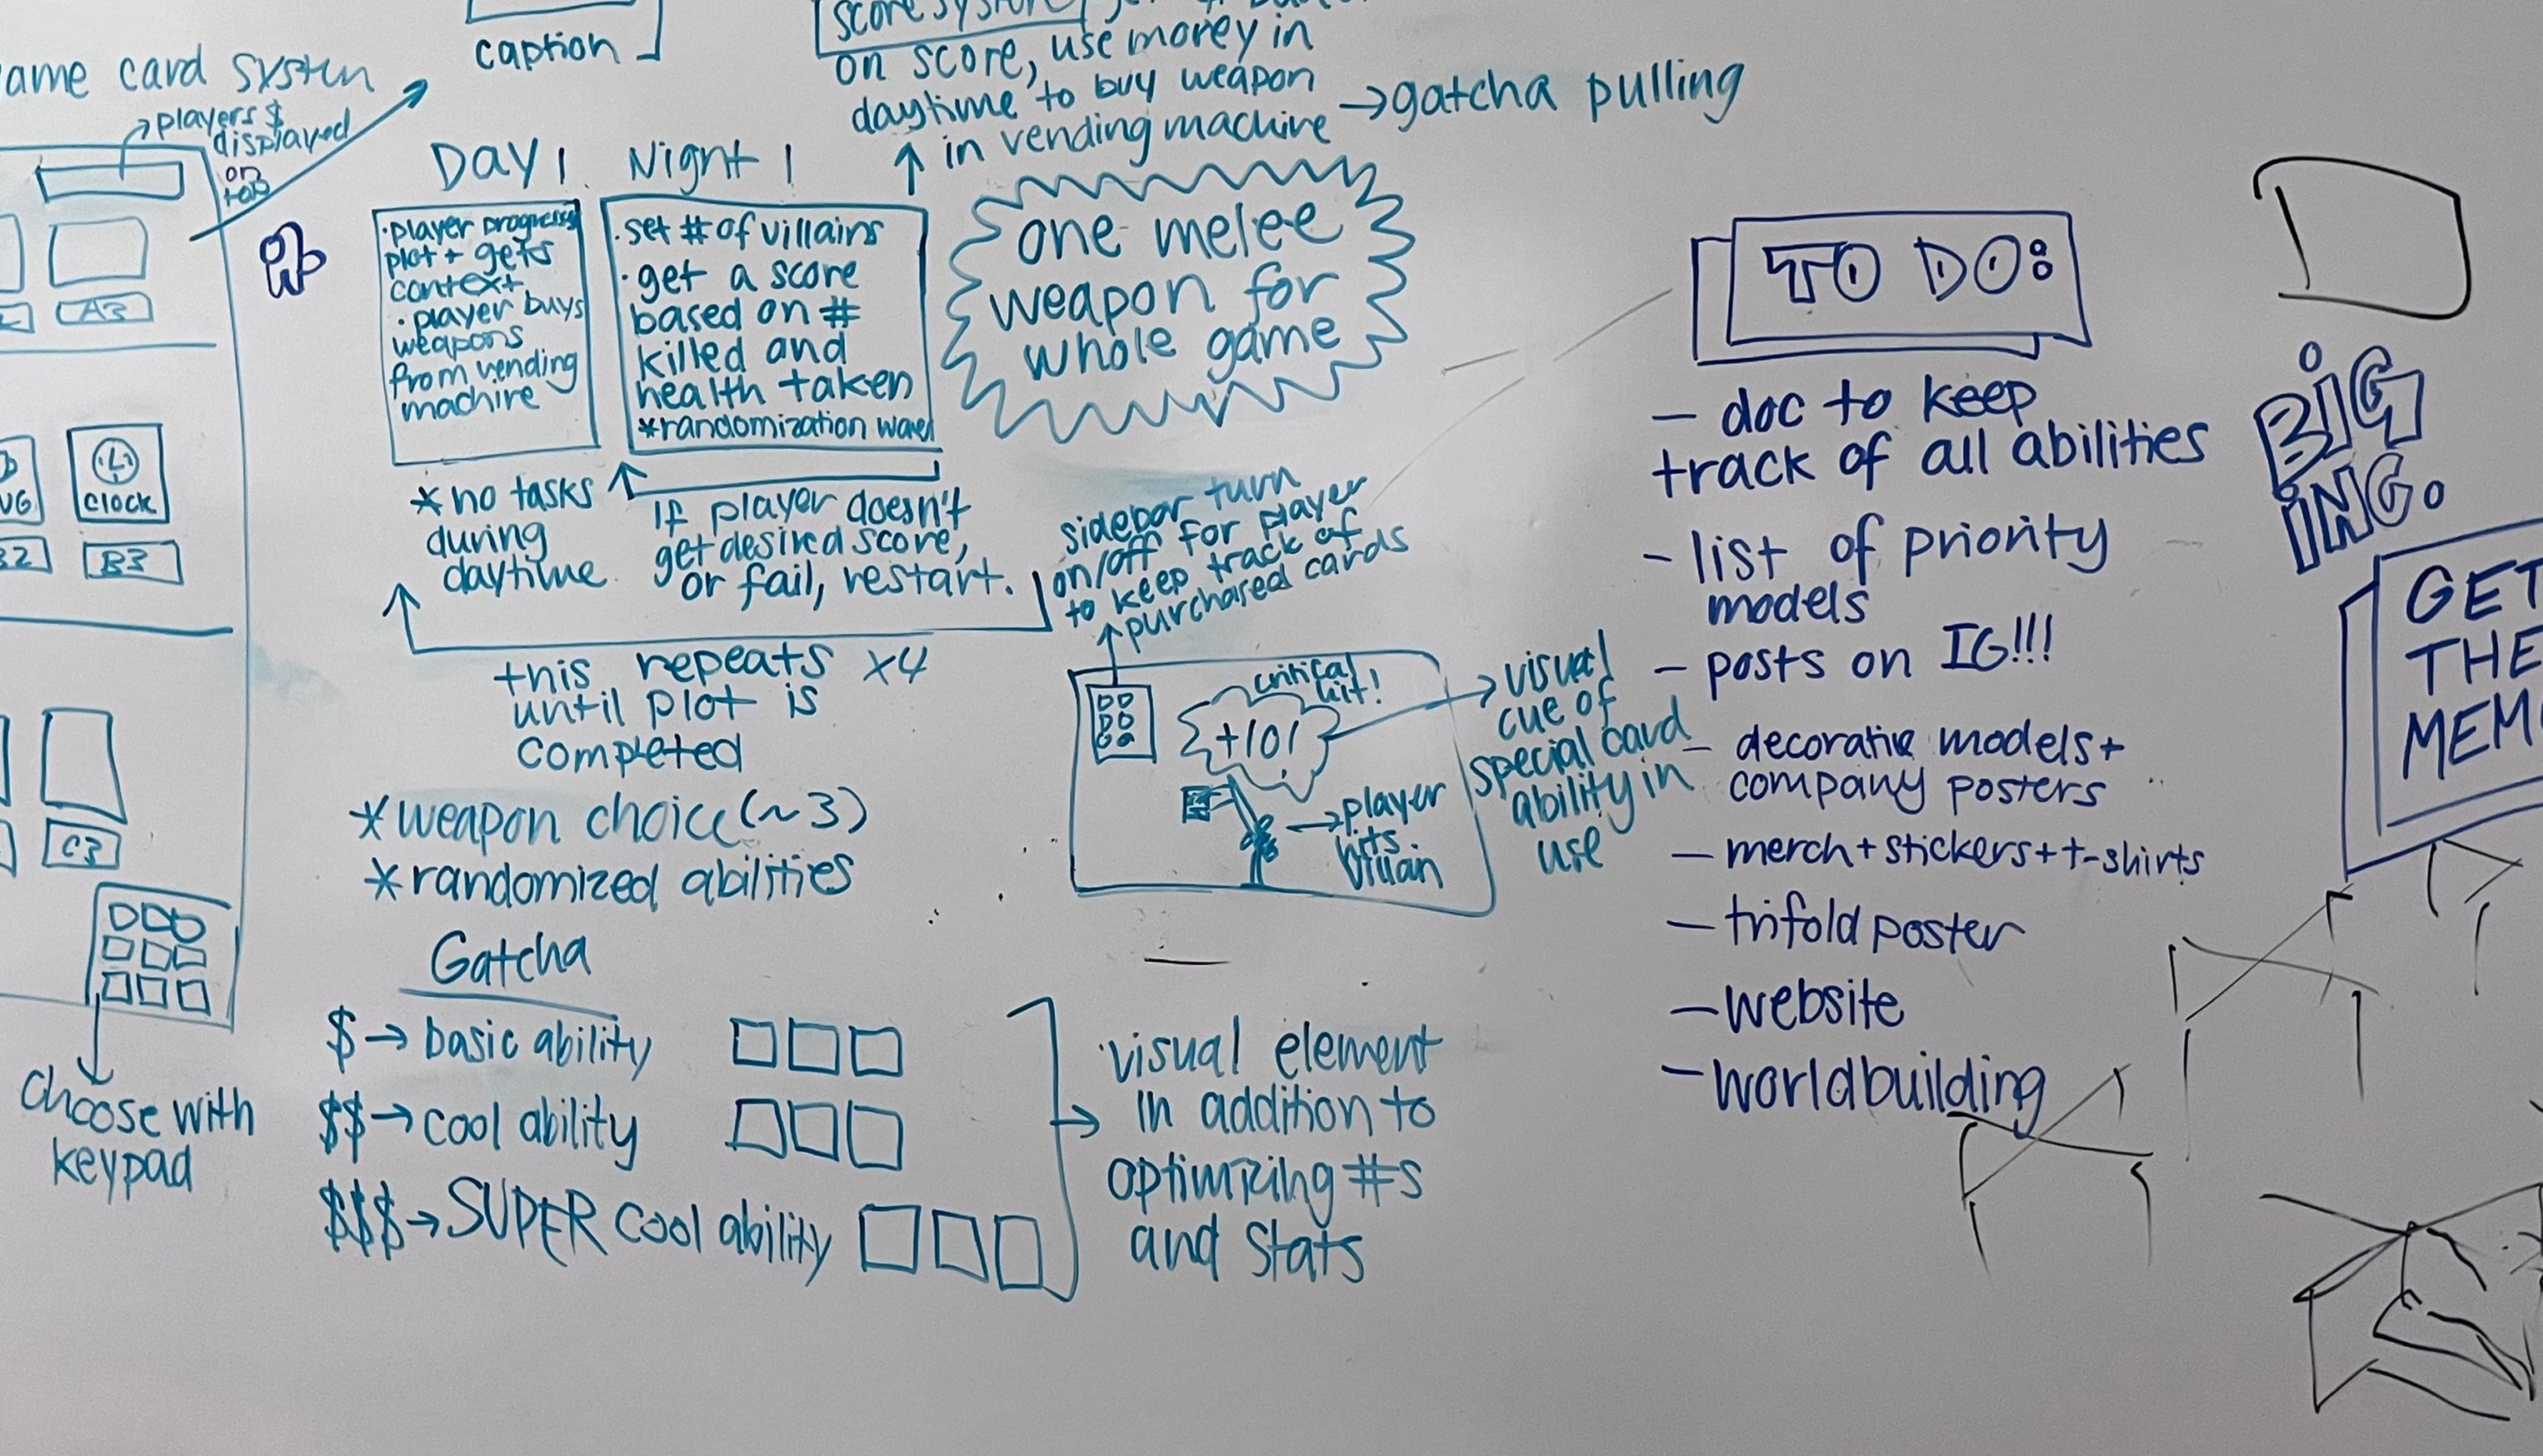 caption
score system
on score, use money in
daytime to buy weapon
in vending machine
→gatcha pulling
ame card system
players $
displayed
on
top
A3
Clock
B3
C3
choose with
keypad
Day 1
·player progresses
plot + gets
context
·player buys
weapons
from vending
machine
*no tasks
during
daytime
Night 1
·set # of villains
·get a score
based on #
killed and
health taken
*randomization
If player doesn't
get desired score,
or fail, restart.
this repeats x4
until plot is
completed
*weapon choice (~3)
*randomized abilities
one melee
weapon for
whole game
sidebar turn
on/off for player
to keep track of
purchased cards
critical
hit!
+101
→player
hits
villain
visual
cue of
special card
ability in
use
Gatcha
$→ basic ability
$$→ cool ability
$$$→ SUPER cool ability
visual element
in addition to
optimizing #s
and stats
TO DO:
- doc to keep
track of all abilities
- list of priority
models
- posts on IG!!!
- decorative models +
company posters
- merch + stickers + t-shirts
- trifold poster
- website
- worldbuilding
BIG
ING.
GET
THE
MEM